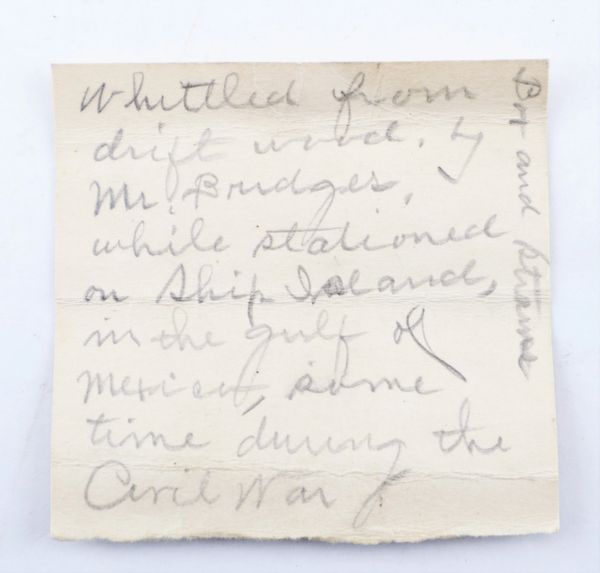 Whittled from
drift wood, by
Mr. Bridges,
while stationed
on Ship Island,
in the gulf of
Mexico, some
time during the
Civil War
Box and